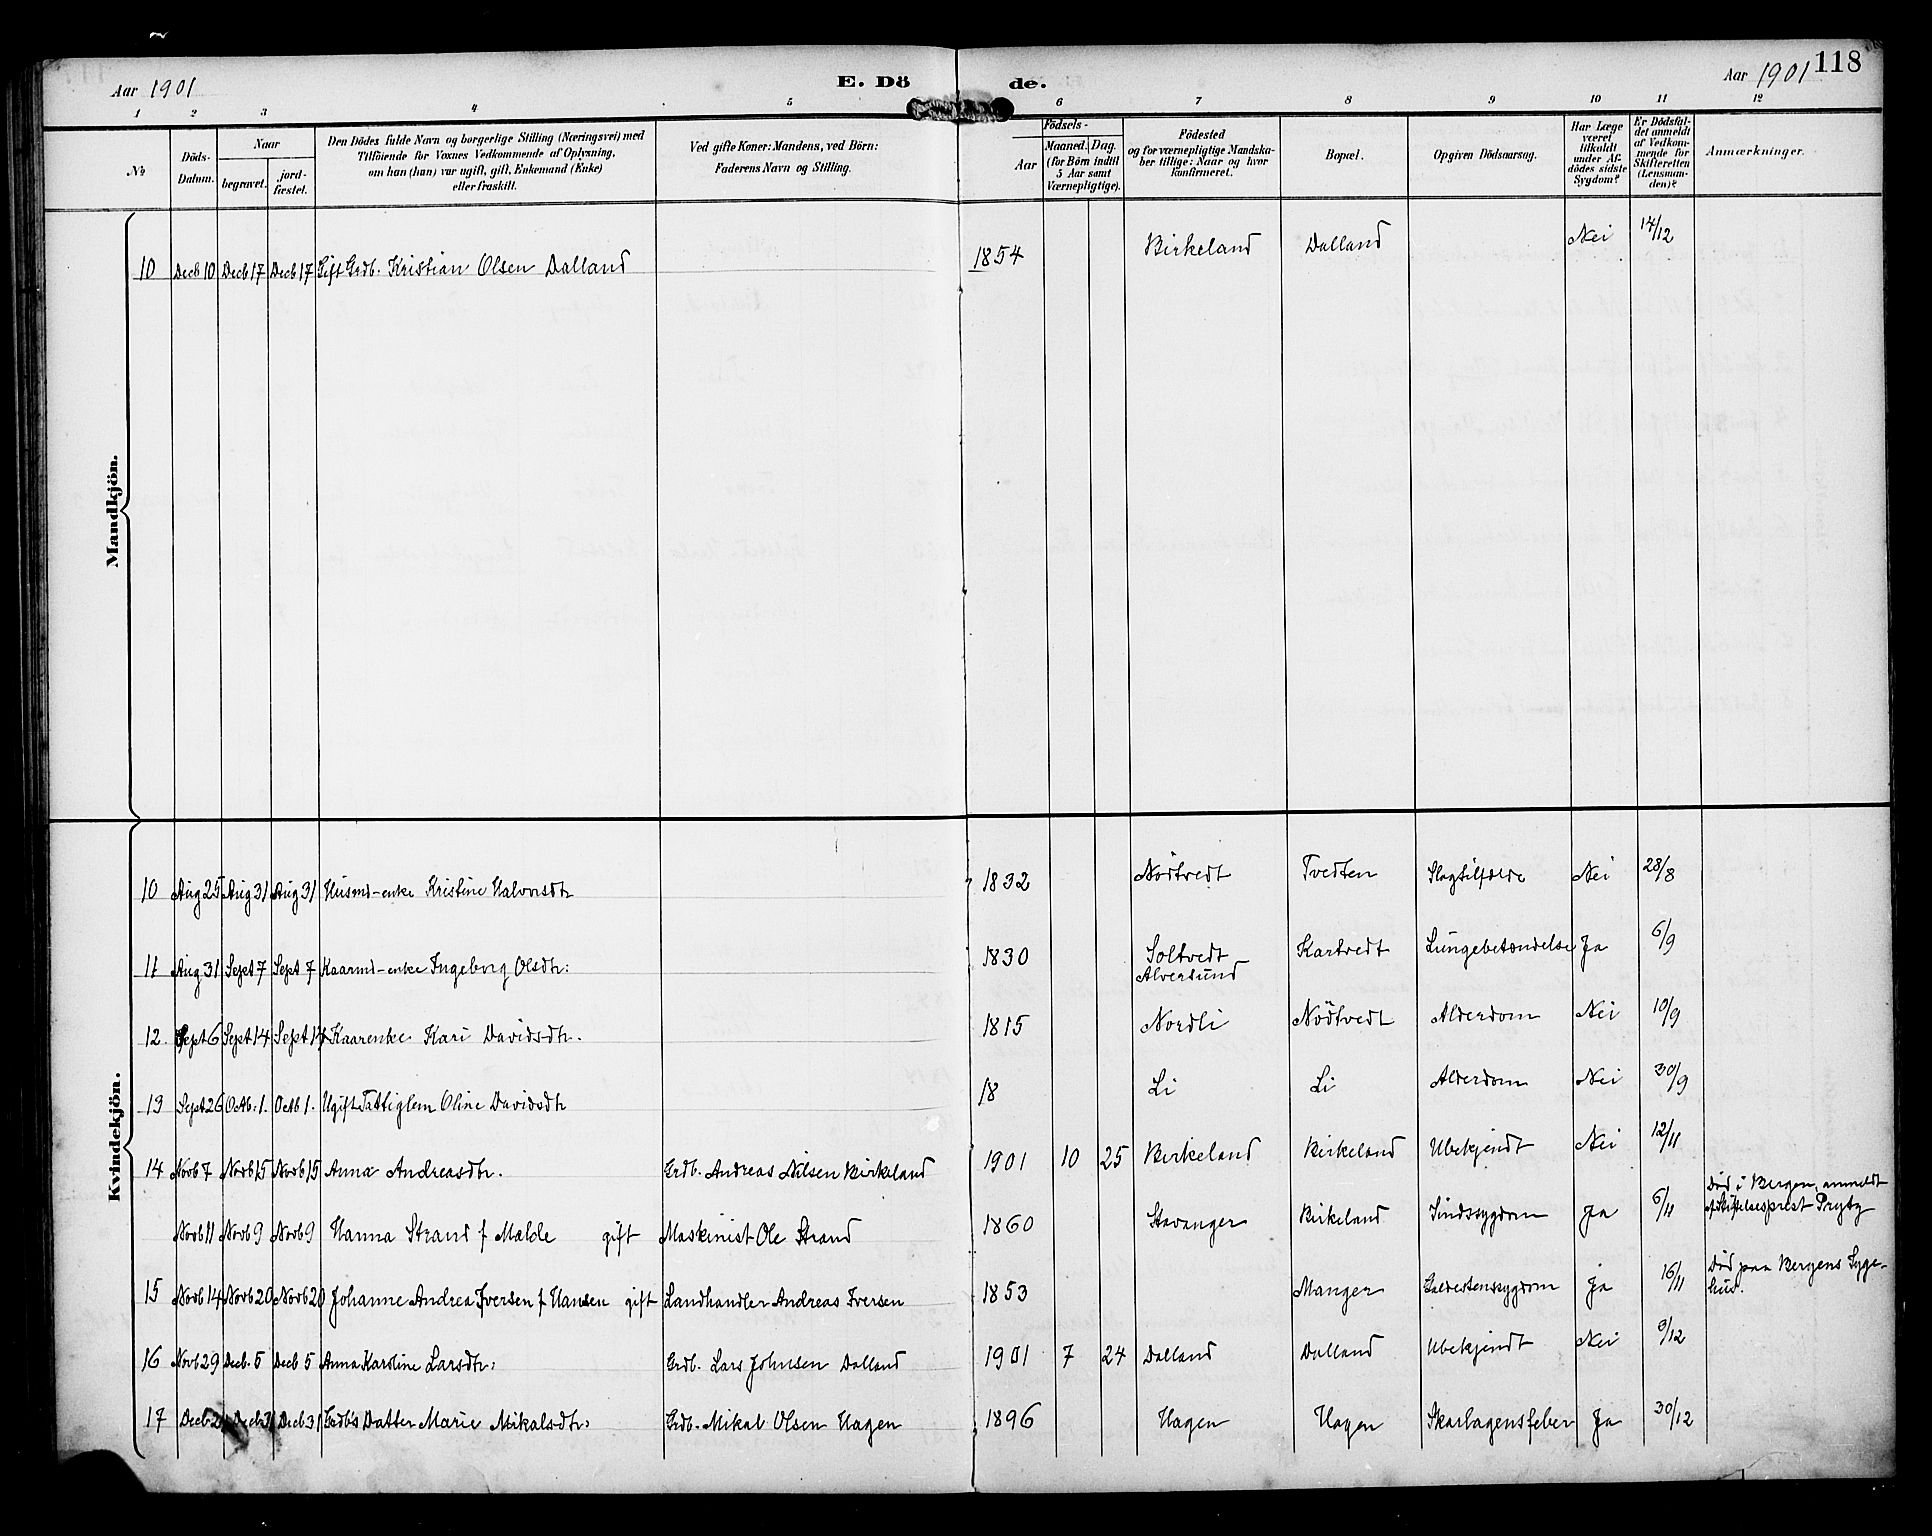 Aar 1901 E. Döde. Aar 1901 118
1 2 3 4 5 6 7 8 9 10 11 12
№ Döds-Datum. Naar begravet. jord-fæstet. Den Dödes fulde Navn og borgerlige Stilling (Næringsvei) med Tilföiende for Voxnes Vedkommende af Oplysning, om han (hun) var ugift, gift, Enkemand (Enke) eller fraskilt. Ved gifte Koner: Mandens, ved Börn: Faderens Navn og Stilling. Födsels- Aar Maaned. Dag. (for Börn indtil 5 Aar samt Værnepligtige). Födested og for værnepligtige Mandskaber tillige: Naar og hvor konfirmeret. Bopæl. Opgiven Dödsaarsag. Har Læge været tilkaldt under Afdödes sidste Sygdom? Er Dödsfaldet anmeldt af Vedkommende for Skifteretten (Lensmanden)? Anmærkninger.
Mandkjön.
10 Decb 10 Decb 17 Decb 17 Gift Grdb. Kristian Olsen Dalland 1854 Birkeland Dalland Nei 14/12
Kvindekjön.
10 Aug 25 Aug 31 Aug 31 Husmd-enke Kristine Halvorsdtr 1832 Nötvedt Tvedten Slagtilfælde Nei 28/8
11 Aug 31 Sept 7 Sept 7 Kaarmd-enke Ingeborg Olsdtr: 1830 Soltvedt Alversund Kartvedt Lungebetændelse Ja 6/9
12. Sept 6 Sept 14 Sept 14 Kaarenke Kari Davidsdtr. 1815 Nordli Nödtvedt Alderdom Nei 10/9
13 Sept 26 Octb. 1. Octb 1. Ugift Fattiglem Oline Davidsdtr 18 Li Li Alderdom Nei 30/9
14 Novb 7 Novb 15 Novb 15 Anna Andreasdtr. Grdb. Andreas Nilsen Birkeland 1901 10 25 Birkeland Birkeland Ubekjendt Nei 12/11
Novb 11 Novb 9 Novb 9 Hanna Strand f Malde gift Maskinist Ole Strand 1860 Stavanger Birkeland Sindssygdom Ja 6/11 Död i Bergen, anmeldt af Stiftelsesprest Prytz
15 Novb 14 Novb 20 Novb 20 Johanne Andrea Iversen f Hansen gift Landhandler Andreas Iversen 1853 Manger Galdestenssygdom Ja 16/11 Död paa Bergens Sygehus.
16 Novb 29 Decb. 5 Decb 5 Anna Karoline Larsdtr: Grdb. Lars Johnsen Dalland 1901 7 24 Dalland Dalland Ubekjendt Nei 3/12
17 Decb 31 Decb 31 Grdb's Datter Marie Mikalsdtr: Grdb. Mikal Olsen Hagen 1896 Hagen Hagen Skarlagensfeber Ja 30/12